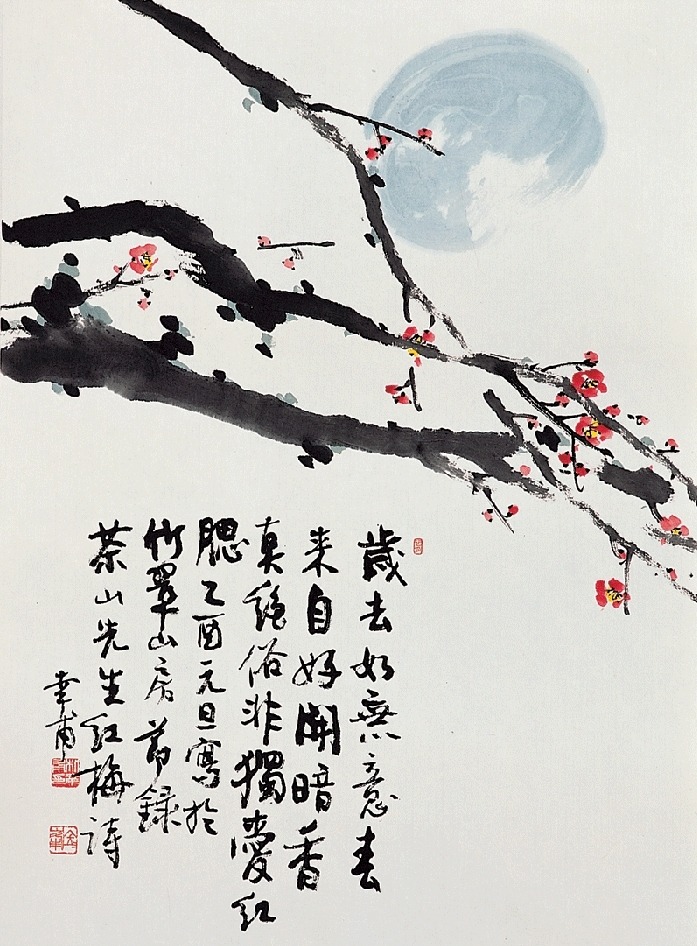 歲去如無意春
來自好開暗香
真絶俗非獨愛紅
腮乙酉元旦寫於
竹翠山房節録
茶山先生紅梅詩
幸甫